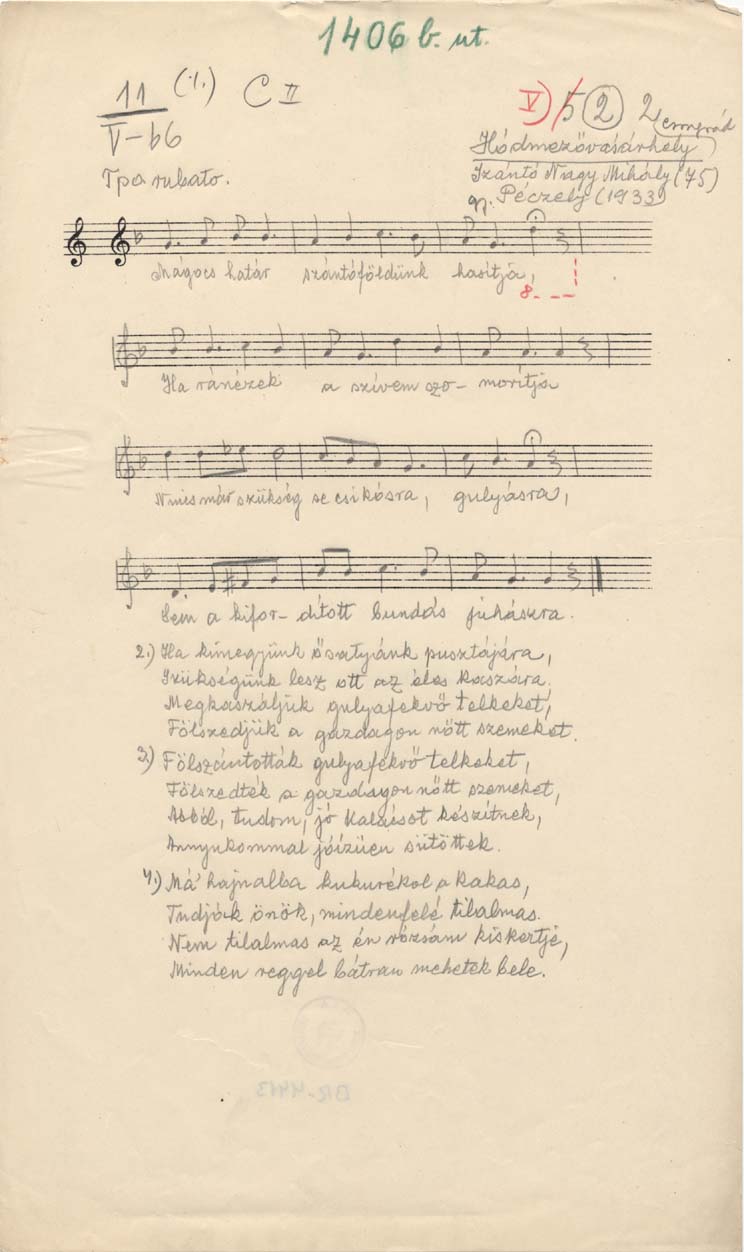 1406 b. ut.
11 (1.) C II
V-b6
V) 5 (2) 2
Csongrád
Hódmezővásárhely
Szántó Nagy Mihály (75)
gy. Péczely (1933)
Tpo rubato.
Mágocs határ szántóföldünk hasítja,
8
Ha ránézek a szívem szo- morítja
Nincs már szükség se csikósra, gulyásra,
Sem a kifor- dított bundás júhászra.
2.) Ha kimegyünk ősatyánk pusztájára,
Szükségünk lesz ott az éles kaszára.
Megkaszáljuk gulyafekvő telkeket,
Fölszedjük a gazdagon nőtt szemeket.
3.) Fölszántották gulyafekvő telkeket,
Fölszedték a gazdagon nőtt szemeket,
Abból, tudom, jó kalácsot készítnek,
Annyukommal jóízűen sütöttek.
4.) Má' hajnalba kukurékol a kakas,
Tudják önök, mindenfelé tilalmas.
Nem tilalmas az én rózsám kiskertje,
Minden reggel bátran mehetek bele.